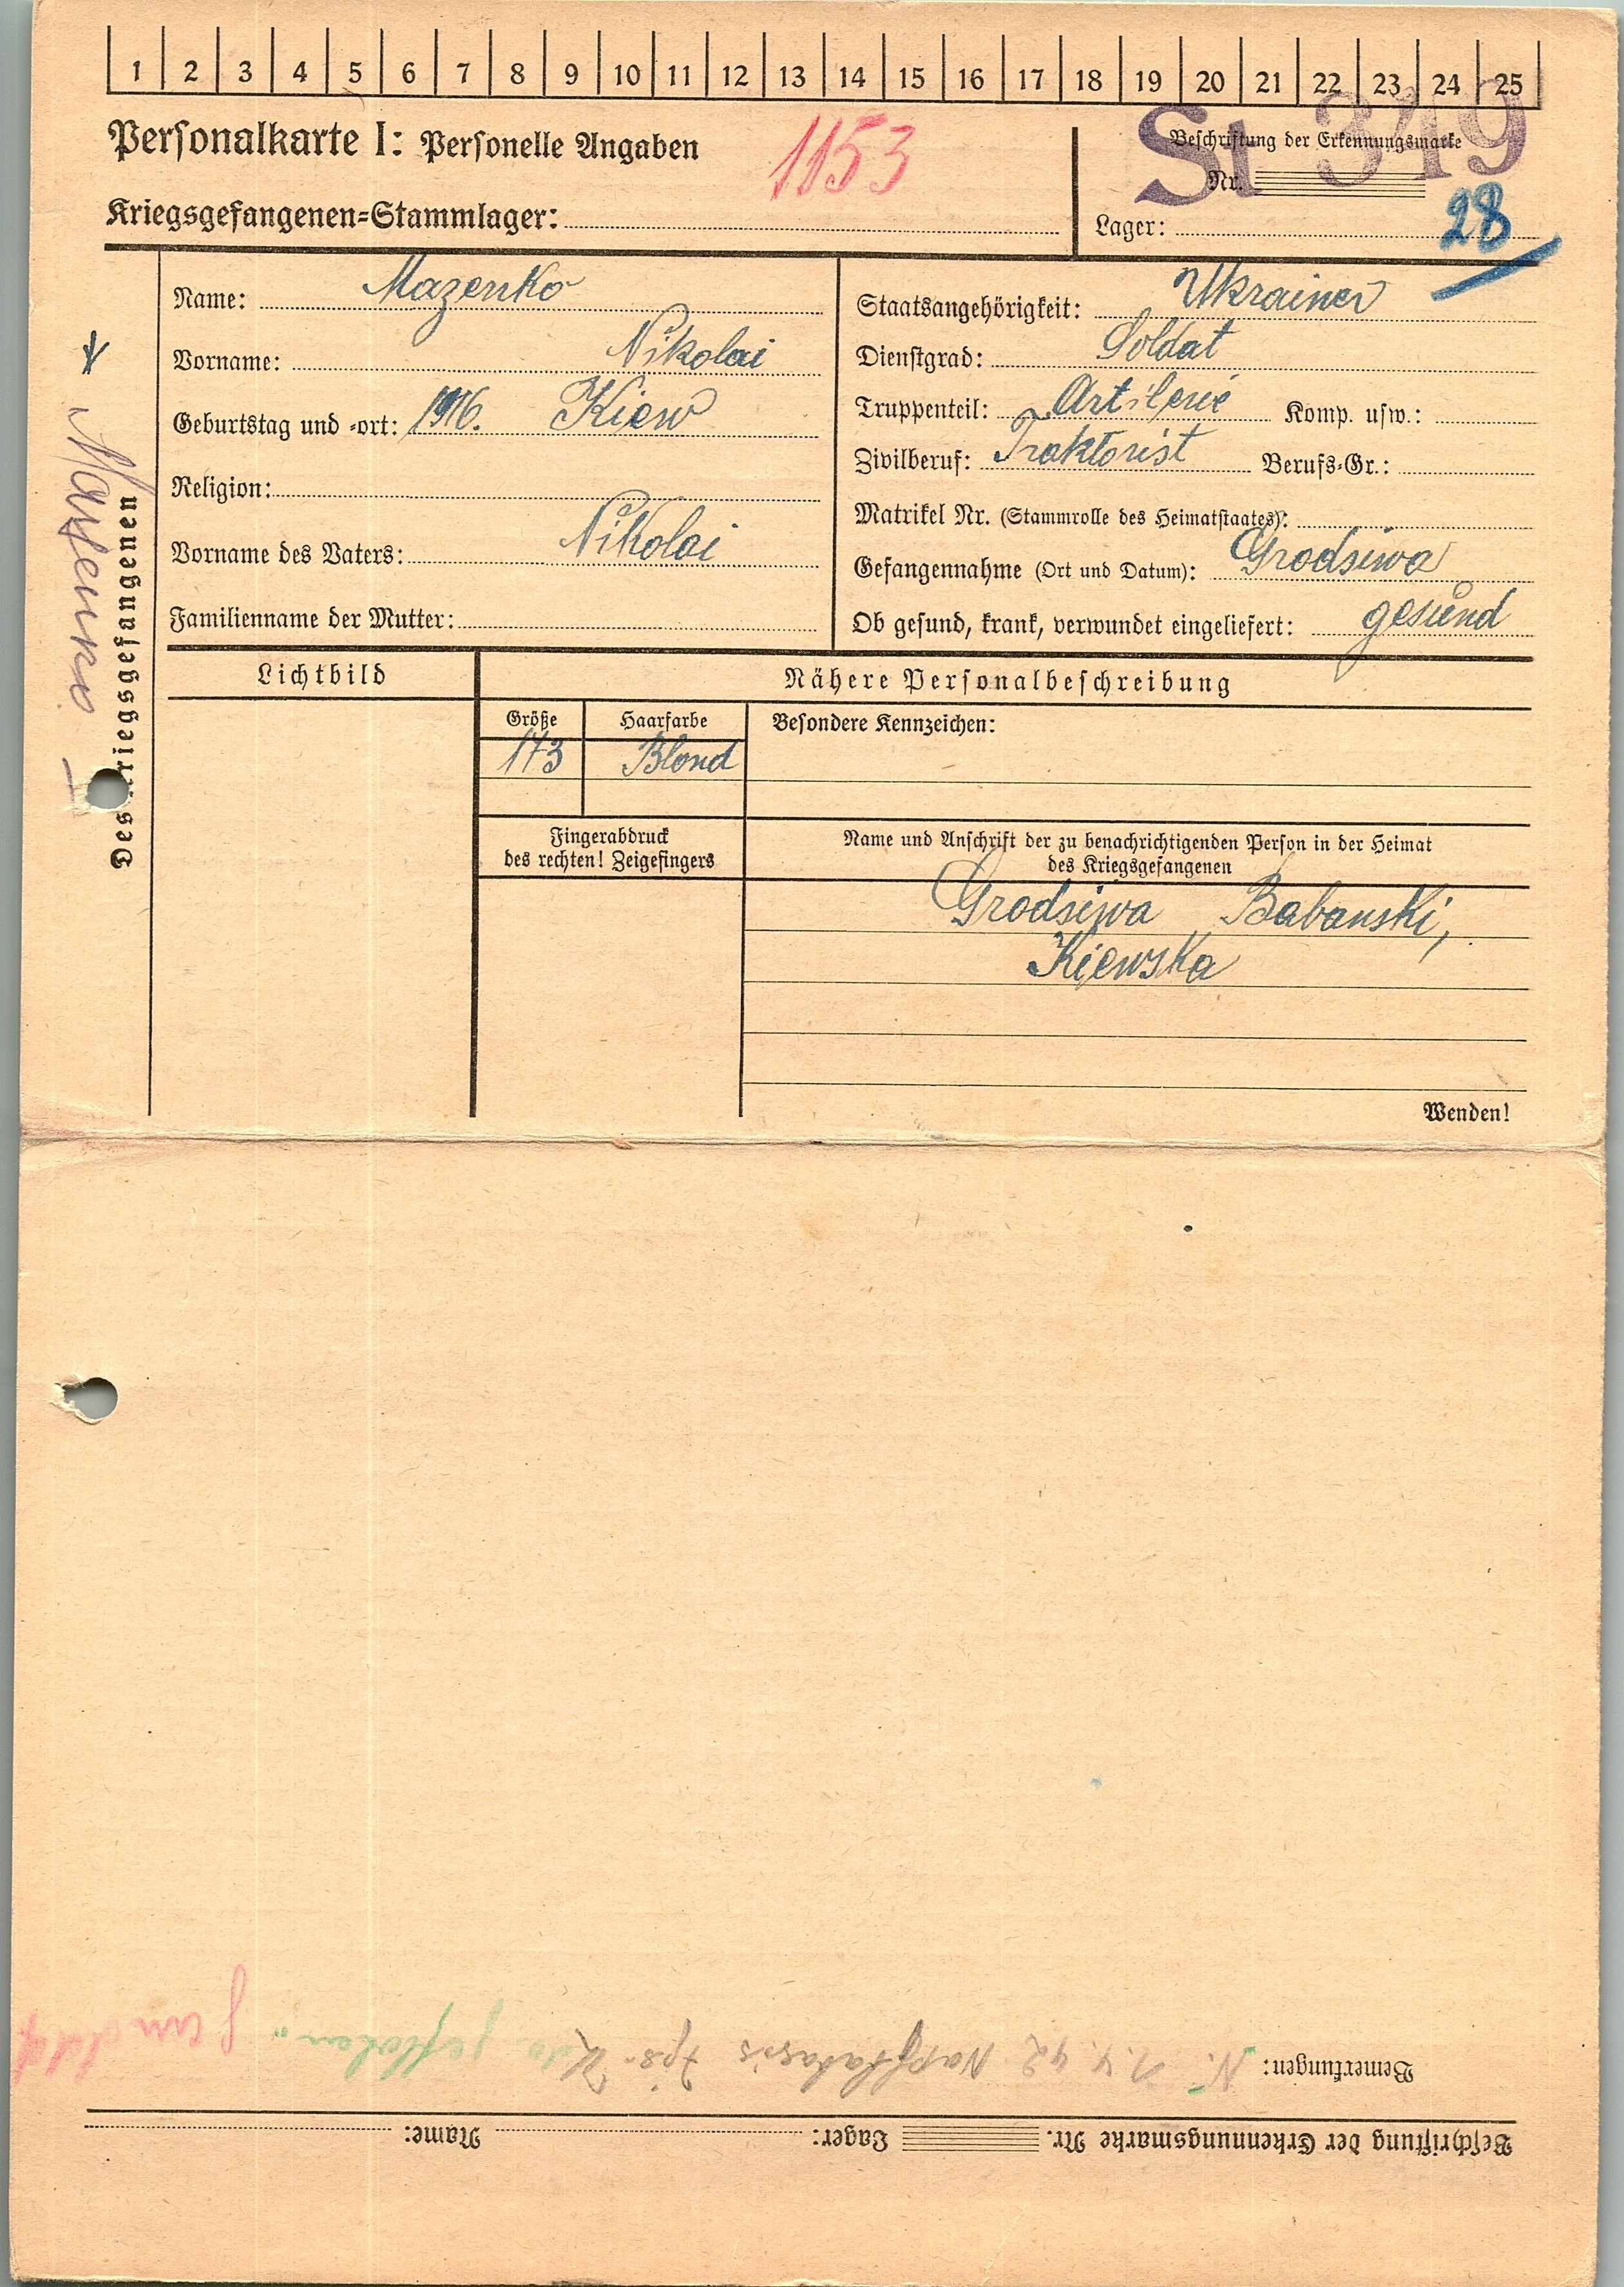 1 2 3 4 5 6 7 8 9 10 11 12 13 14 15 16 17 18 19 20 21 22 23 24 25
Personalkarte I: Personelle Angaben
1153
Kriegsgefangenen=Stammlager:
Beschriftung der Erkennungsmarke
St 319
Nr.
Lager: 28
Name: Mazenko
Vorname: Nikolai
Geburtstag und =ort: 1916. Kiew
Religion:
Vorname des Vaters: Nikolai
Familienname der Mutter:
Staatsangehörigkeit: Ukrainer
Dienstgrad: Soldat
Truppenteil: Artilerie Komp. usw.:
Zivilberuf: Traktorist Berufs=Gr.:
Matrikel Nr. (Stammrolle des Heimatstaates):
Gefangennahme (Ort und Datum): Grodsiwa
Ob gesund, krank, verwundet eingeliefert: gesund
Des Kriegsgefangenen
Lichtbild
Nähere Personalbeschreibung
Größe Haarfarbe Besondere Kennzeichen:
173 Blond
Fingerabdruck
des rechten! Zeigefingers
Name und Anschrift der zu benachrichtigenden Person in der Heimat
des Kriegsgefangenen
Grodsiwa Babanski,
Kiewska
Wenden!
Beschriftung der Erkennungsmarke Nr. Lager: Name:
Bemerkungen: N. 1.4.42